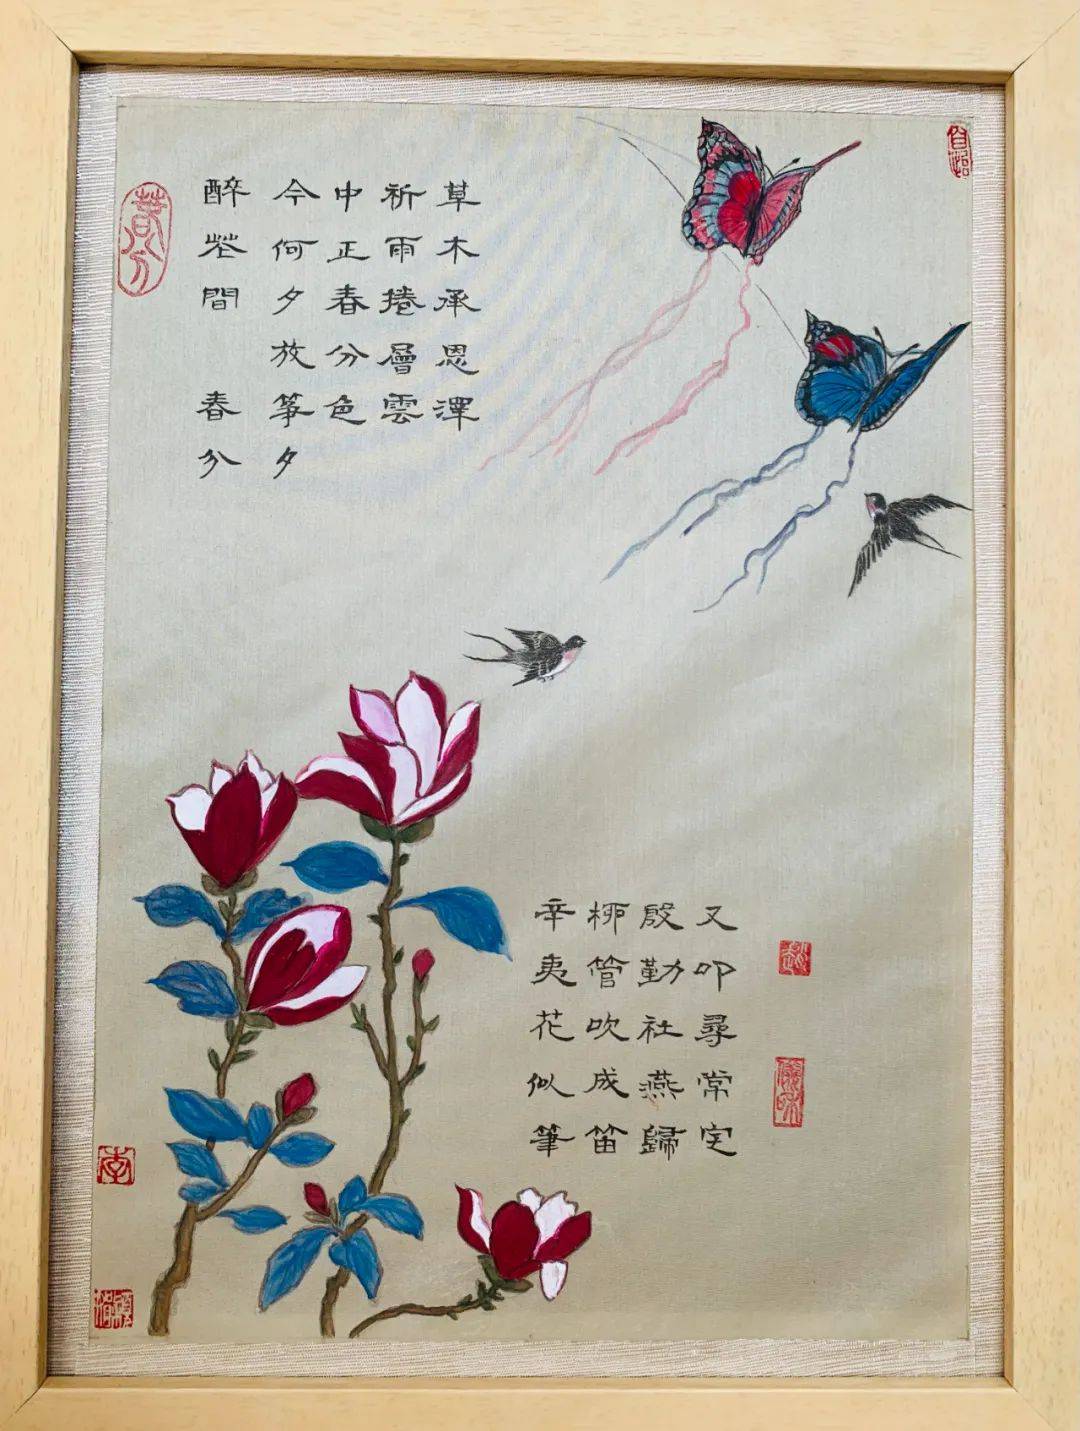 醉花間 春分
今何夕放筝夕
中正春分色
祈雨捲層雲
草木承恩澤
辛夷花似筆
柳管吹成笛
殷勤社燕歸
又叩尋常宅
春分
李